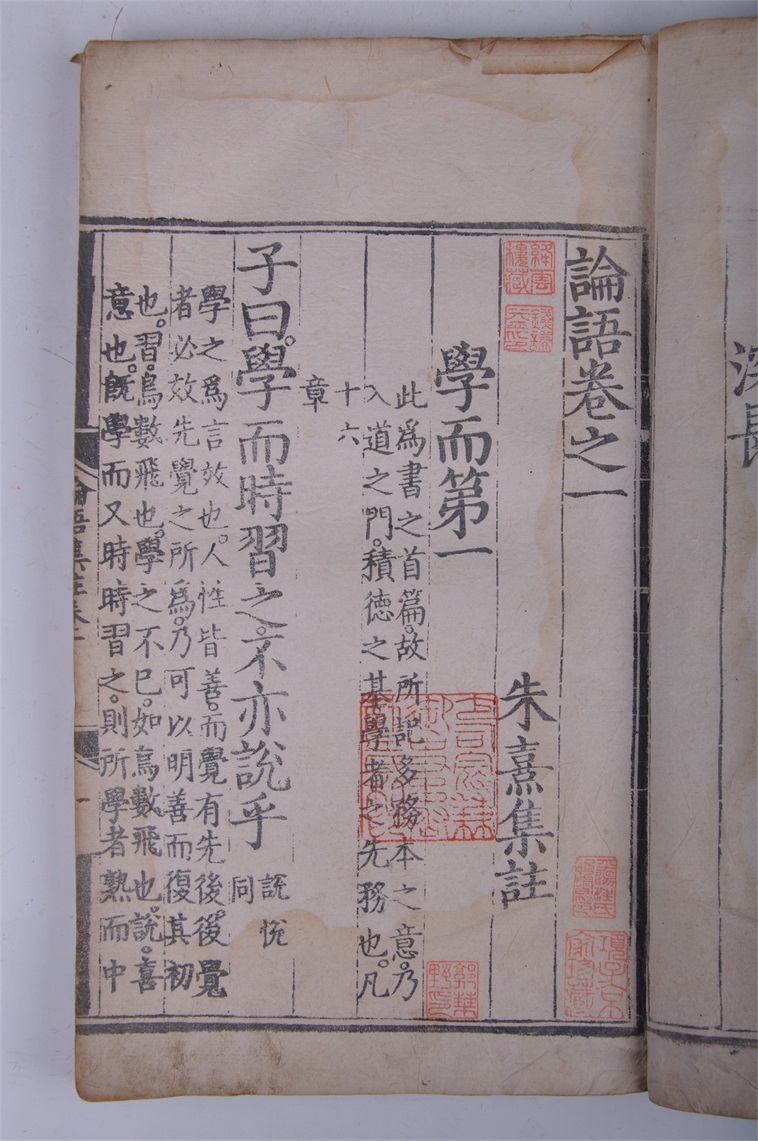 論語卷之一
朱熹集註
學而第一
此爲書之首篇。故所記多務本之意。乃
入道之門。積德之基。學者之先務也。凡
十六
章
子曰。學而時習之。不亦說乎
說悅
同
學之爲言效也。人性皆善。而覺有先後。後覺
者必效先覺之所爲。乃可以明善而復其初
也。習。鳥數飛也。學之不已。如鳥數飛也。說。喜
意也。旣學而又時時習之。則所學者熟而中
絳雲
樓藏
項子京
家珍藏
深長